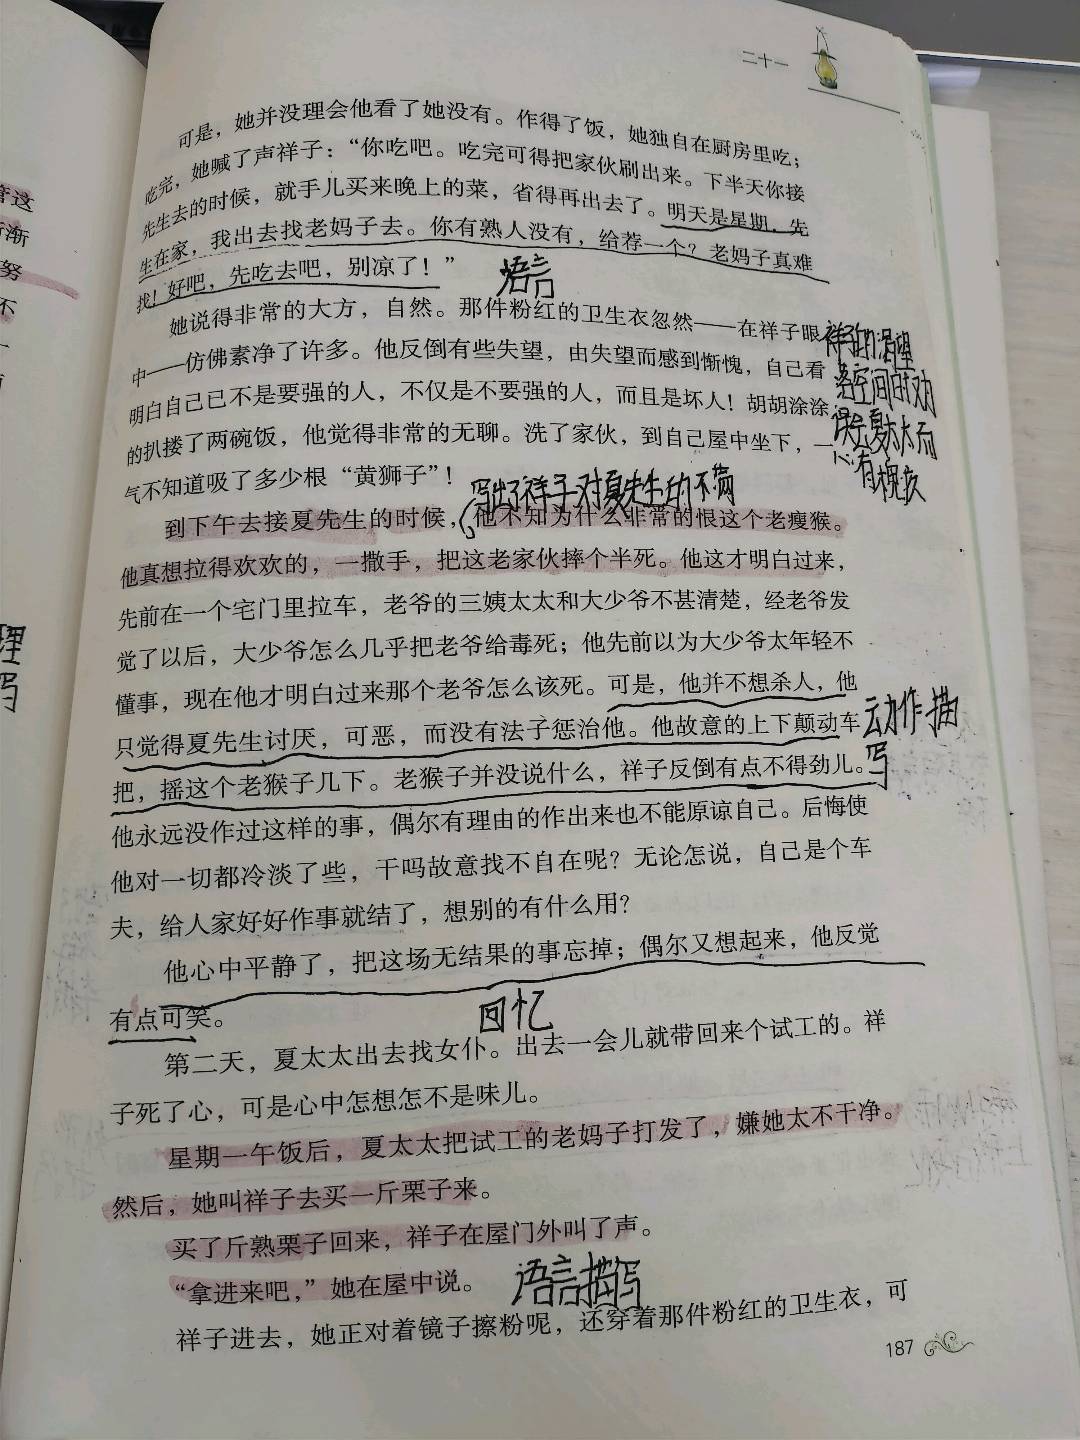 二十一
管这
渐渐
努
不
一
可是，她并没理会他看了她没有。作得了饭，她独自在厨房里吃；
吃完，她喊了声祥子：“你吃吧。吃完可得把家伙刷出来。下半天你接
先生去的时候，就手儿买来晚上的菜，省得再出去了。明天是星期，先
生在家，我出去找老妈子去。你有熟人没有，给荐一个？老妈子真难
找！好吧，先吃去吧，别凉了！”
语言
她说得非常的大方，自然。那件粉红的卫生衣忽然——在祥子眼
中——仿佛素净了许多。他反倒有些失望，由失望而感到惭愧，自己看
明白自己已不是要强的人，不仅是不要强的人，而且是坏人！胡胡涂涂
的扒搂了两碗饭，他觉得非常的无聊。洗了家伙，到自己屋中坐下，一
气不知道吸了多少根“黄狮子”！
祥子的渴望
落空间时劝
误会夏太太而
心有愧疚
写出了祥子对夏先生的不满
到下午去接夏先生的时候，他不知为什么非常的恨这个老瘦猴。
他真想拉得欢欢的，一撒手，把这老家伙摔个半死。他这才明白过来，
先前在一个宅门里拉车，老爷的三姨太太和大少爷不甚清楚，经老爷发
觉了以后，大少爷怎么几乎把老爷给毒死；他先前以为大少爷太年轻不
懂事，现在他才明白过来那个老爷怎么该死。可是，他并不想杀人，他
只觉得夏先生讨厌，可恶，而没有法子惩治他。他故意的上下颠动车
把，摇这个老猴子几下。老猴子并没说什么，祥子反倒有点不得劲儿。
动作描
写
他永远没作过这样的事，偶尔有理由的作出来也不能原谅自己。后悔使
他对一切都冷淡了些，干吗故意找不自在呢？无论怎说，自己是个车
夫，给人家好好作事就结了，想别的有什么用？
他心中平静了，把这场无结果的事忘掉；偶尔又想起来，他反觉
有点可笑。
回忆
第二天，夏太太出去找女仆。出去一会儿就带回来个试工的。祥
子死了心，可是心中怎想怎不是味儿。
星期一午饭后，夏太太把试工的老妈子打发了，嫌她太不干净。
然后，她叫祥子去买一斤栗子来。
买了斤熟栗子回来，祥子在屋门外叫了声。
“拿进来吧，”她在屋中说。
语言描写
祥子进去，她正对着镜子擦粉呢，还穿着那件粉红的卫生衣，可
187
理
写